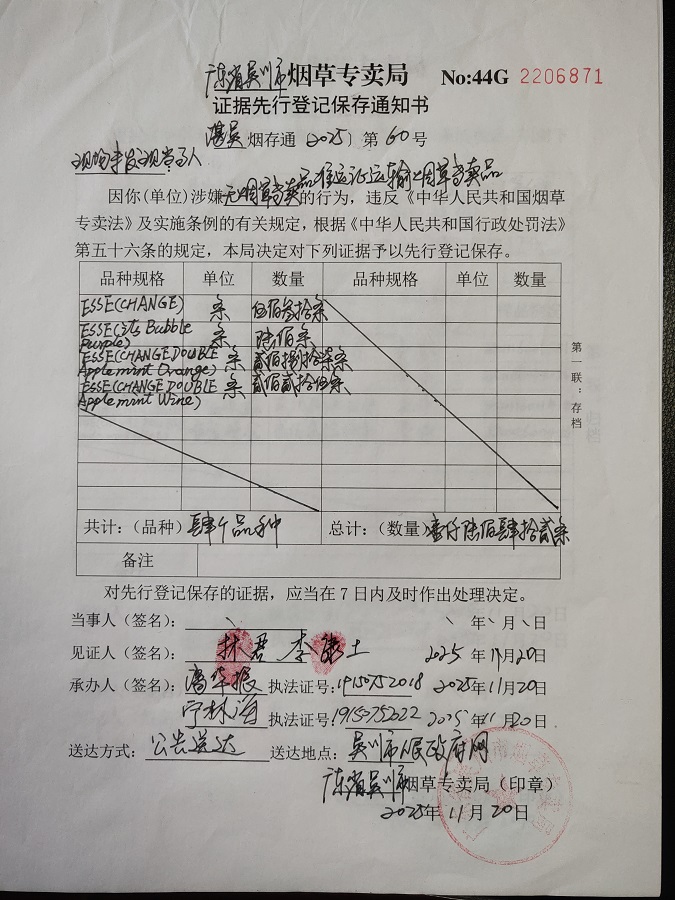 广东省吴川市烟草专卖局 No:44G 2206871
证据先行登记保存通知书
湛吴 烟存通〔2025〕第 60 号
现场未发现当事人
因你(单位)涉嫌无烟草专卖品准运证运输烟草专卖品的行为，违反《中华人民共和国烟草
专卖法》及实施条例的有关规定，根据《中华人民共和国行政处罚法》
第五十六条的规定，本局决定对下列证据予以先行登记保存。
品种规格 单位 数量 品种规格 单位 数量
ESSE(CHANGE) 条 伍佰叁拾条
ESSE(Its Bubble Purple) 条 陆佰条
ESSE(CHANGE DOUBLE Applemint Orange) 条 贰佰捌拾柒条
ESSE(CHANGE DOUBLE Applemint Wine) 条 贰佰贰拾伍条
共计：(品种) 肆个品种 总计：(数量) 壹仟陆佰肆拾贰条
备注
第一联：存档
对先行登记保存的证据，应当在 7 日内及时作出处理决定。
当事人（签名）： 、 、 年、月、日
见证人（签名）： 林君 李 土 2025 年 11月20日
承办人（签名）： 潘华振 执法证号：19150752018 2025年11月20日
宁林海 执法证号：19150752022 2025年11月20日
送达方式：公告送达 送达地点：吴川市人民政府网
广东省吴川市烟草专卖局（印章）
2025年 11 月 20 日